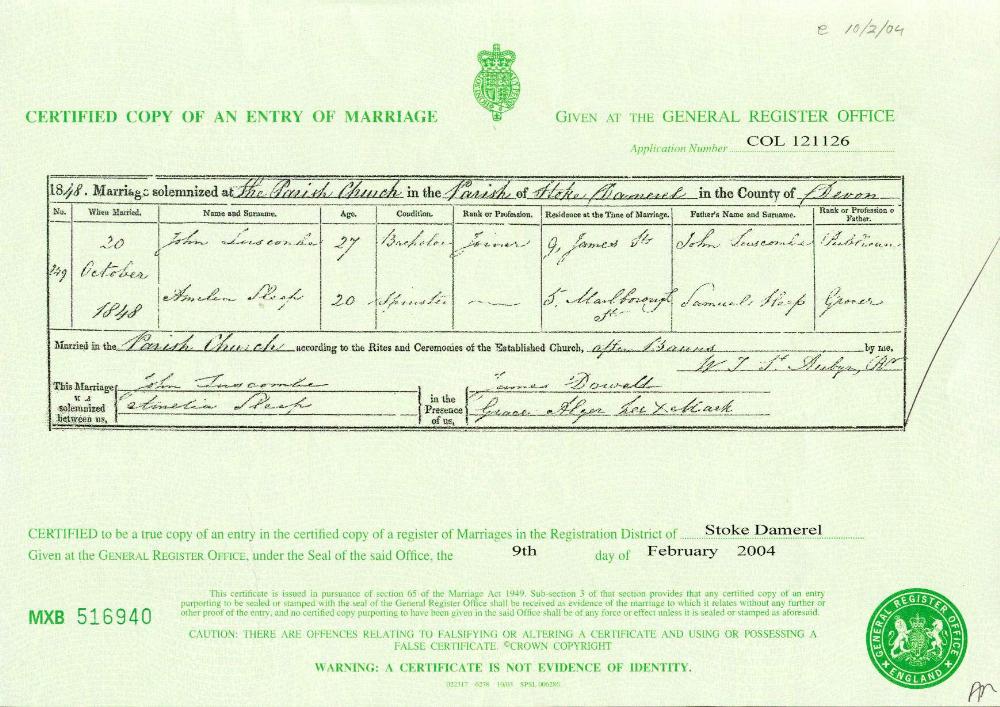 e 10/2/04
CERTIFIED COPY OF AN ENTRY OF MARRIAGE
GIVEN AT THE GENERAL REGISTER OFFICE
Application Number COL 121126
1848. Marriage solemnized at The Parish Church in the Parish of Stoke Damerel in the County of Devon
No. When Married. Name and Surname. Age. Condition. Rank or Profession. Residence at the Time of Marriage. Father's Name and Surname. Rank or Profession o Father.
249 20 October 1848
John Luscombe 27 Bachelor Joiner 9, James St John Luscombe Publican
Amelia Sleep 20 Spinster — 5. Marlborough St Samuel Sleep Grocer
Married in the Parish Church according to the Rites and Ceremonies of the Established Church, after Banns by me,
W. J. St Aubyn
This Marriage was solemnized between us, John Luscombe Amelia Sleep
in the Presence of us, James Dowell Grace Alger her X Mark
CERTIFIED to be a true copy of an entry in the certified copy of a register of Marriages in the Registration District of Stoke Damerel
Given at the GENERAL REGISTER OFFICE, under the Seal of the said Office, the 9th day of February 2004
MXB 516940
This certificate is issued in pursuance of section 65 of the Marriage Act 1949. Sub-section 3 of that section provides that any certified copy of an entry
purporting to be sealed or stamped with the seal of the General Register Office shall be received as evidence of the marriage to which it relates without any further or
other proof of the entry, and no certified copy purporting to have been given in the said Office shall be of any force or effect unless it is sealed or stamped as aforesaid.
CAUTION: THERE ARE OFFENCES RELATING TO FALSIFYING OR ALTERING A CERTIFICATE AND USING OR POSSESSING A
FALSE CERTIFICATE. ©CROWN COPYRIGHT
WARNING: A CERTIFICATE IS NOT EVIDENCE OF IDENTITY.
GENERAL REGISTER OFFICE
ENGLAND